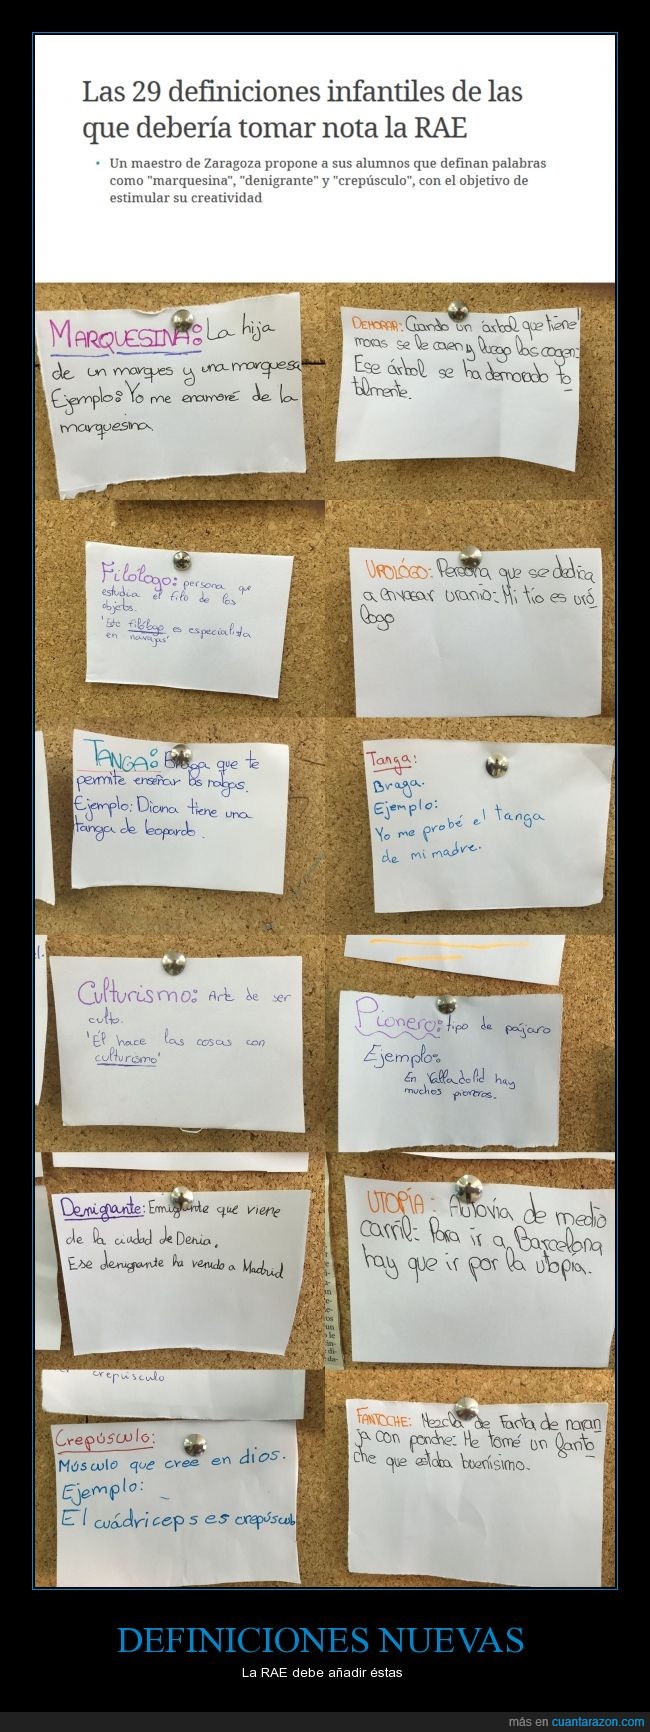 Las 29 definiciones infantiles de las
que debería tomar nota la RAE
• Un maestro de Zaragoza propone a sus alumnos que definan palabras
como "marquesina", "denigrante" y "crepúsculo", con el objetivo de
estimular su creatividad
MARQUESINA: La hija
de un marques y una marquesa
Ejemplo: Yo me enamoré de la
marquesina.
DEMORAR: Cuando un árbol que tiene
moras se le caen y luego las cogen:
Ese árbol se ha demorado to
talmente.
Filólogo: persona que
estudia el filo de los
objetos.
'Este filólogo es especialista
en navajas'
UROLÓGO: Persona que se dedica
a envasar uranio: Mi tío es uró
logo
TANGA: Braga que te
permite enseñar las nalgas.
Ejemplo: Diana tiene una
tanga de leopardo.
Tanga:
Braga.
Ejemplo:
Yo me probé el tanga
de mi madre.
Culturismo: Arte de ser
culto.
'Él hace las cosas con
culturismo'
Pionero: tipo de pájaro
Ejemplo:
En Valladolid hay
muchos pioneros.
Denigrante: Emigrante que viene
de la ciudad de Denia.
Ese denigrante ha venido a Madrid
UTOPÍA: Autovía de medio
carril: Para ir a Barcelona
hay que ir por la utopia.
crepúsculo
Crepúsculo:
Músculo que cree en dios.
Ejemplo:
El cuádriceps es crepúsculo
FANTOCHE: Mezcla de Fanta de naran
ja con ponche: Me tomé un fanto
che que estaba buenísimo.
DEFINICIONES NUEVAS
La RAE debe añadir éstas
más en cuantarazon.com